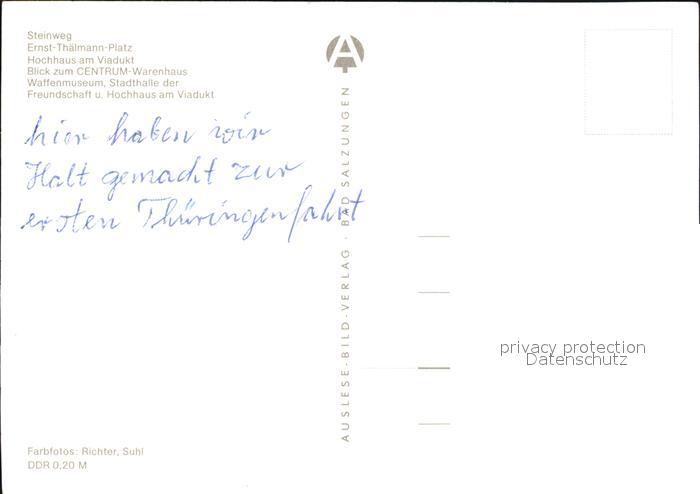 Steinweg
Ernst-Thälmann-Platz
Hochhaus am Viadukt
Blick zum CENTRUM-Warenhaus
Waffenmuseum, Stadthalle der
Freundschaft u. Hochhaus am Viadukt
hier haben wir
Halt gemacht zur
ersten Thüringenfahrt
A
AUSLESE-BILD-VERLAG · BAD SALZUNGEN
privacy protection
Datenschutz
Farbfotos: Richter, Suhl
DDR 0,20 M